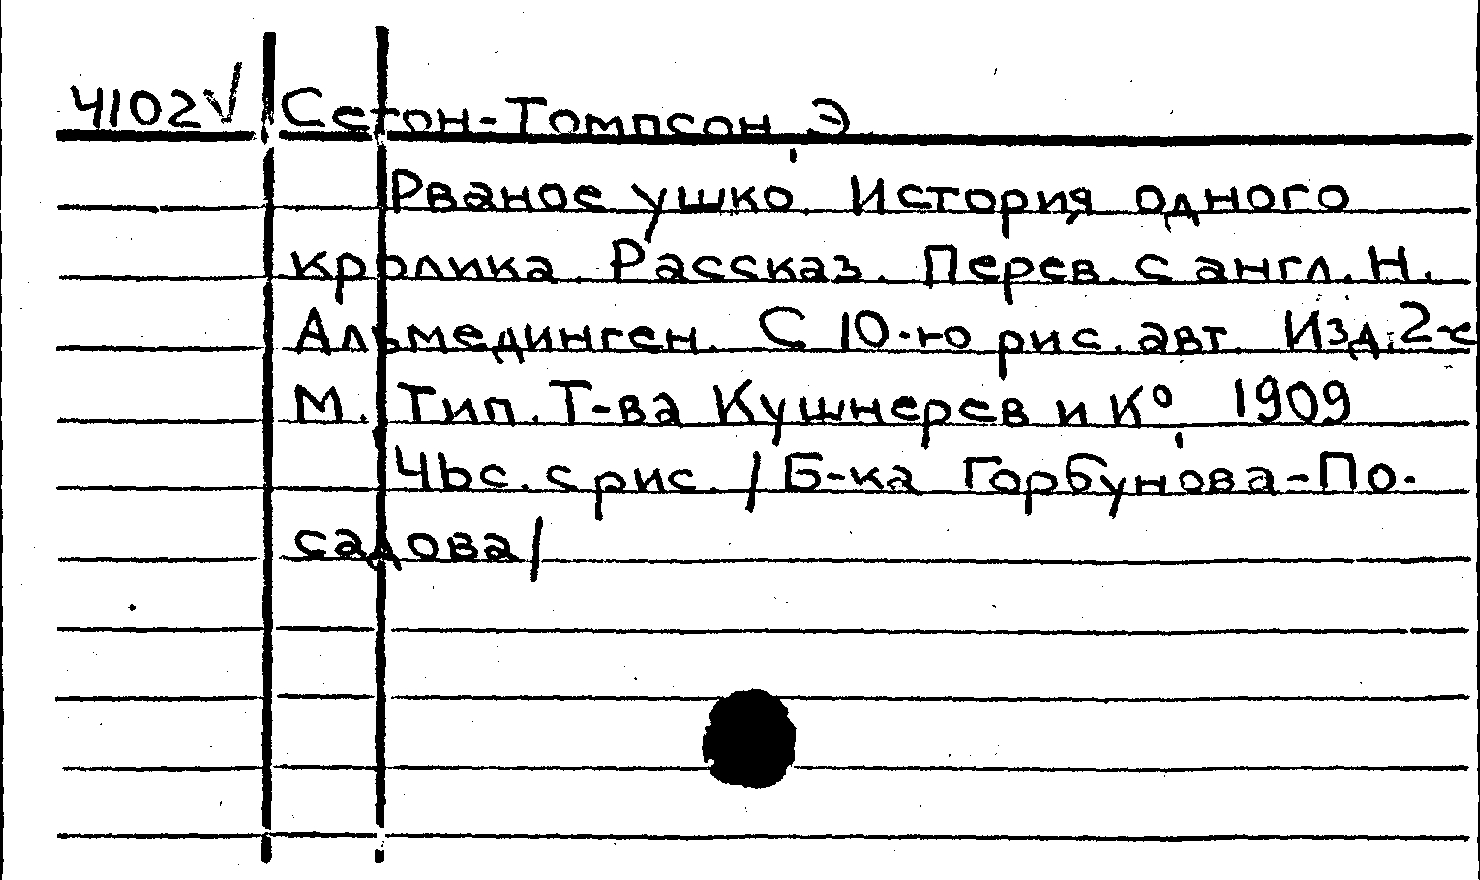 4102 √ Сетон-Томпсон, Э.
Рваное ушко. История одного
кролика. Рассказ. Перев. с англ. Н.
Альмединген. С 10-ю рис. авт. Изд. 2-е
М. Тип. Т-ва Кушнерев и К°, 1909
46с. с рис. /Б-ка Горбунова-По-
садова/